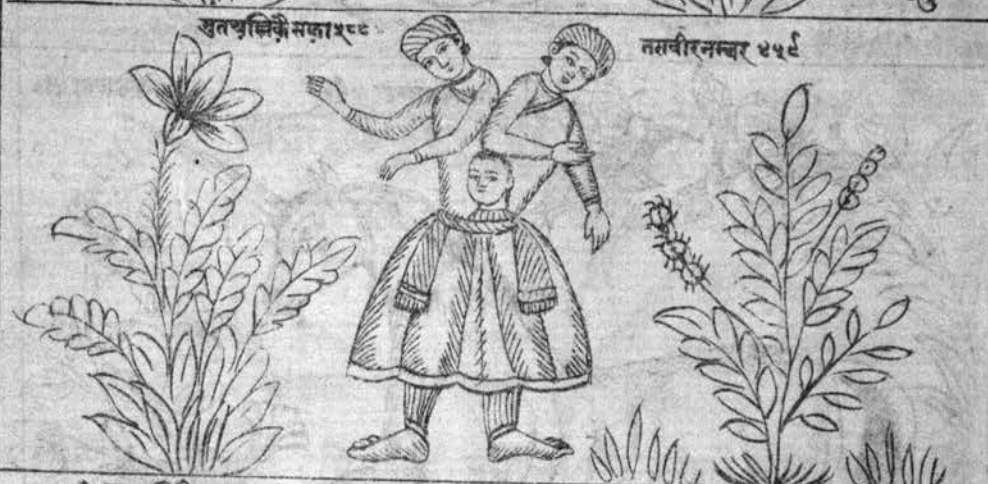 मुतअल्लिकै सफ़ा ५८८
तसवीर नम्बर ४५९